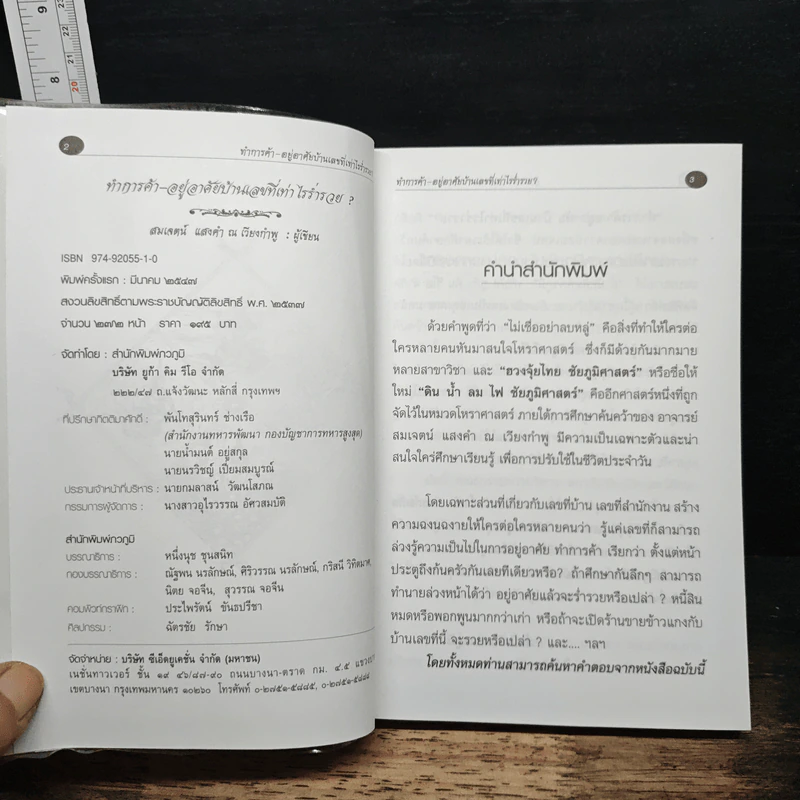 2
ทำการค้า-อยู่อาศัยบ้านเลขที่เท่าไรร่ำรวย ?
ทำการค้า-อยู่อาศัยบ้านเลขที่เท่าไรร่ำรวย ?
สมเจตน์ แสงคำ ณ เวียงกำพู : ผู้เขียน
ISBN 974-92055-1-0
พิมพ์ครั้งแรก : มีนาคม ๒๕๔๗
สงวนลิขสิทธิ์ตามพระราชบัญญัติลิขสิทธิ์ พ.ศ. ๒๕๓๗
จำนวน ๒๗๒ หน้า ราคา ๑๙๕ บาท
จัดทำโดย : สำนักพิมพ์ภวภูมิ
บริษัท ยูก้า คิม รีโอ จำกัด
๒๒๒/๔๗ ถ.แจ้งวัฒนะ หลักสี่ กรุงเทพฯ
ที่ปรึกษากิตติมาศักดี : พันโทสุรินทร์ ช่างเรือ
(สำนักงานทหารพัฒนา กองบัญชาการทหารสูงสุด)
นายน้ำมนต์ อยู่สกุล
นายนรวิชญ์ เปี่ยมสมบูรณ์
ประธานเจ้าหน้าที่บริหาร : นายกมลาสน์ วัฒนโสภณ
กรรมการผู้จัดการ : นางสาวอุไรวรรณ อัศวสมบัติ
สำนักพิมพ์ภวภูมิ
บรรณาธิการ : หนึ่งนุช ชุนสนิท
กองบรรณาธิการ : ณัฐพน นรลักษณ์, ศิริวรรณ นรลักษณ์, กริสนี วิทิตมาศ,
นิตย จอจีน, สุวรรณ จอจีน
คอมพิวท์กราฟิก : ประไพรัตน์ ขันธปรีชา
ศิลปกรรม : ฉัตรชัย รักษา
จัดจำหน่าย : บริษัท ซีเอ็ดยูเคชั่น จำกัด (มหาชน)
เนชั่นทาวเวอร์ ชั้น ๑๙ ๔๖/๘๗-๙๐ ถนนบางนา-ตราด กม. ๔.๕ แขวงบางนา
เขตบางนา กรุงเทพมหานคร ๑๐๒๖๐ โทรศัพท์ ๐-๒๗๕๑-๕๘๘๕, ๐-๒๗๕๑-๕๘๘๘
ทำการค้า-อยู่อาศัยบ้านเลขที่เท่าไรร่ำรวย?
3
คำนำสำนักพิมพ์
ด้วยคำพูดที่ว่า "ไม่เชื่ออย่าลบหลู่" คือสิ่งที่ทำให้ใครต่อ
ใครหลายคนหันมาสนใจโหราศาสตร์ ซึ่งก็มีด้วยกันมากมาย
หลายสาขาวิชา และ "ฮวงจุ้ยไทย ชัยภูมิศาสตร์" หรือชื่อให้
ใหม่ "ดิน น้ำ ลม ไฟ ชัยภูมิศาสตร์" คืออีกศาสตร์หนึ่งที่ถูก
จัดไว้ในหมวดโหราศาสตร์ ภายใต้การศึกษาค้นคว้าของ อาจารย์
สมเจตน์ แสงคำ ณ เวียงกำพู มีความเป็นเฉพาะตัวและน่า
สนใจใคร่ศึกษาเรียนรู้ เพื่อการปรับใช้ในชีวิตประจำวัน
โดยเฉพาะส่วนที่เกี่ยวกับเลขที่บ้าน เลขที่สำนักงาน สร้าง
ความฉงนฉงายให้ใครต่อใครหลายคนว่า รู้แค่เลขที่ก็สามารถ
ล่วงรู้ความเป็นไปในการอยู่อาศัย ทำการค้า เรียกว่า ตั้งแต่หน้า
ประตูถึงก้นครัวกันเลยทีเดียวหรือ? ถ้าศึกษากันลึกๆ สามารถ
ทำนายล่วงหน้าได้ว่า อยู่อาศัยแล้วจะร่ำรวยหรือเปล่า ? หนี้สิน
หมดหรือพอกพูนมากกว่าเก่า หรือถ้าจะเปิดร้านขายข้าวแกงกับ
บ้านเลขที่นี้ จะรวยหรือเปล่า ? และ.... ฯลฯ
โดยทั้งหมดท่านสามารถค้นหาคำตอบจากหนังสือฉบับนี้
9
8
23
22
21
20